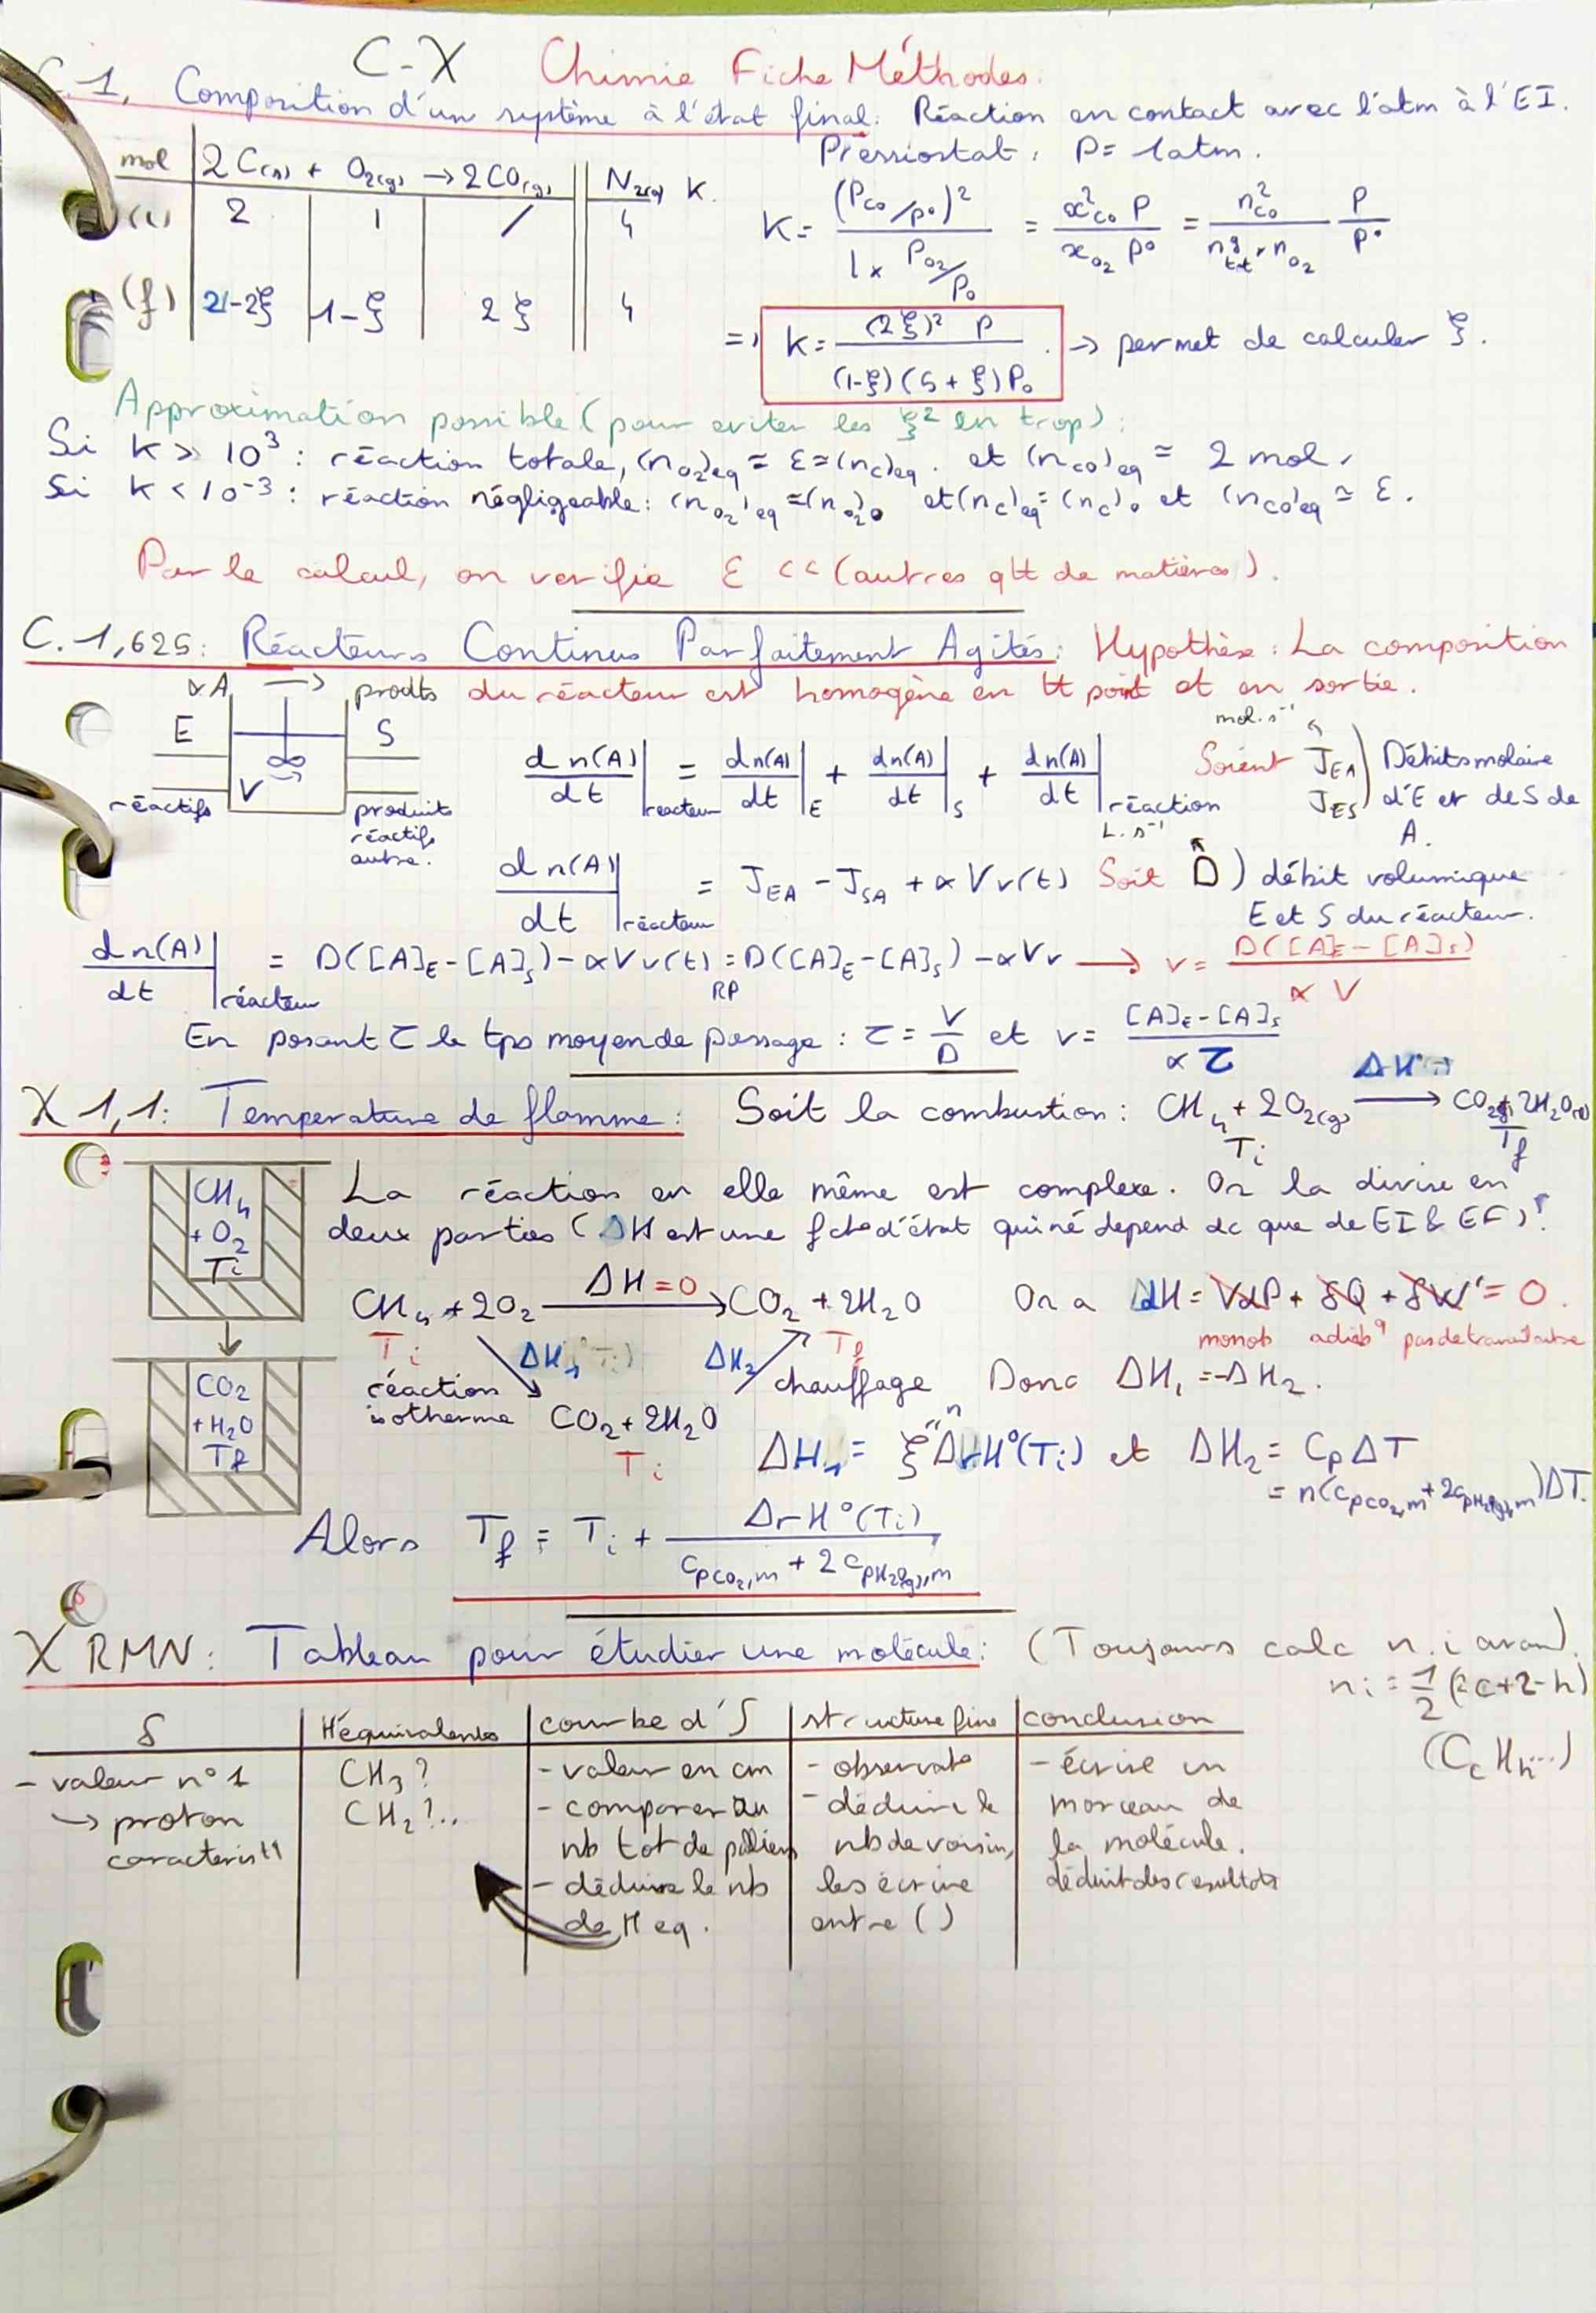 C-X Chimie Fiche Méthodes.
C.1. Composition d'un système à l'état final: Réaction en contact avec l'atm à l'EI.
Pressiostat, P = 1 atm.
mol | 2 C(s) + O2(g) → 2 CO(g) || N2(g) K.
(i) 2 | 1 | / || 4
(f) 2-2ξ | 1-ξ | 2ξ || 4
K = (PCO/P°)² / (1 × PO2/P°) = x²CO P / xO2 P° = n²CO / (n^g tot × nO2) P/P°
=> K = (2ξ)² P / (1-ξ)(5+ξ)P° . → permet de calculer ξ.
Approximation possible (pour eviter les ξ² en trop):
Si K > 10³ : réaction totale, (nO2)eq ≃ ε ≃ (nC)eq. et (nCO)eq ≃ 2 mol.
Si K < 10⁻³ : réaction négligeable: (nO2)eq ≃ (nO2)0 et (nC)eq = (nC)0 et (nCO)eq ≃ ε.
Par le calcul, on verifie ε << (autres qtt de matières).
C.1,625: Réacteurs Continus Parfaitement Agités: Hypothèse: La composition
du réacteur est homogène en tt point et en sortie.
αA → prodts
E S
V
réactifs
produits
réactifs
autre.
dn(A)/dt |réacteur = dn(A)/dt |E + dn(A)/dt |S + dn(A)/dt |réaction
mol.s⁻¹
Soient JEA JES ) Débits molaire
d'E et de S de
A.
L.s⁻¹
dn(A)/dt |réacteur = JEA - JSA + αVv(t) Soit D ) débit volumique
E et S du réacteur.
dn(A)/dt |réacteur = D([A]E - [A]S) - αVv(t) =RP D([A]E - [A]S) - αVv → v = D([A]E - [A]S) / αV
En posant τ le tps moyen de passage : τ = V/D et v = [A]E - [A]S / ατ
X 1,1: Temperature de flamme: Soit la combustion: CH4 + 2O2(g) → CO2(g) + 2H2O(g)
ΔH
Ti Tf
CH4
+ O2
Ti
La réaction en elle même est complexe. On la divise en
deux parties (ΔH est une fct° d'état qui ne depend dc que de EI & EF)!
CH4 + 2O2 → ΔH = 0 CO2 + 2H2O On a dH = VdP + δQ + δW' = 0.
Ti Tf monob adiab^q pas de travail autre
ΔH1 (Ti) ΔH2
réaction isotherme
chauffage Donc ΔH1 = -ΔH2.
CO2
+ H2O
Tf
CO2 + 2H2O
Ti
ΔH1 = ξ "n" ΔrH°(Ti) et ΔH2 = Cp ΔT
= n(cpCO2,m + 2cpH2O(g),m)ΔT.
Alors Tf = Ti + ΔrH°(Ti) / cpCO2,m + 2cpH2O(g),m
X RMN: Tableau pour étudier une molécule: (Toujours calc n.i avant).
ni = 1/2 (2c+2-h)
(Cc Hh...)
δ | H équivalents | courbe d'∫ | structure fine | conclusion
- valeur n°1 | CH3? | - valeur en cm | - observat° | - écrire un
→ proton | CH2?.. | - comparer au | - déduire le | morceau de
caracteristq | nb tot de paliers | nb de voisins, | la molécule.
- déduire le nb | les écrire | déduit des resultats
de H eq. | entre ()